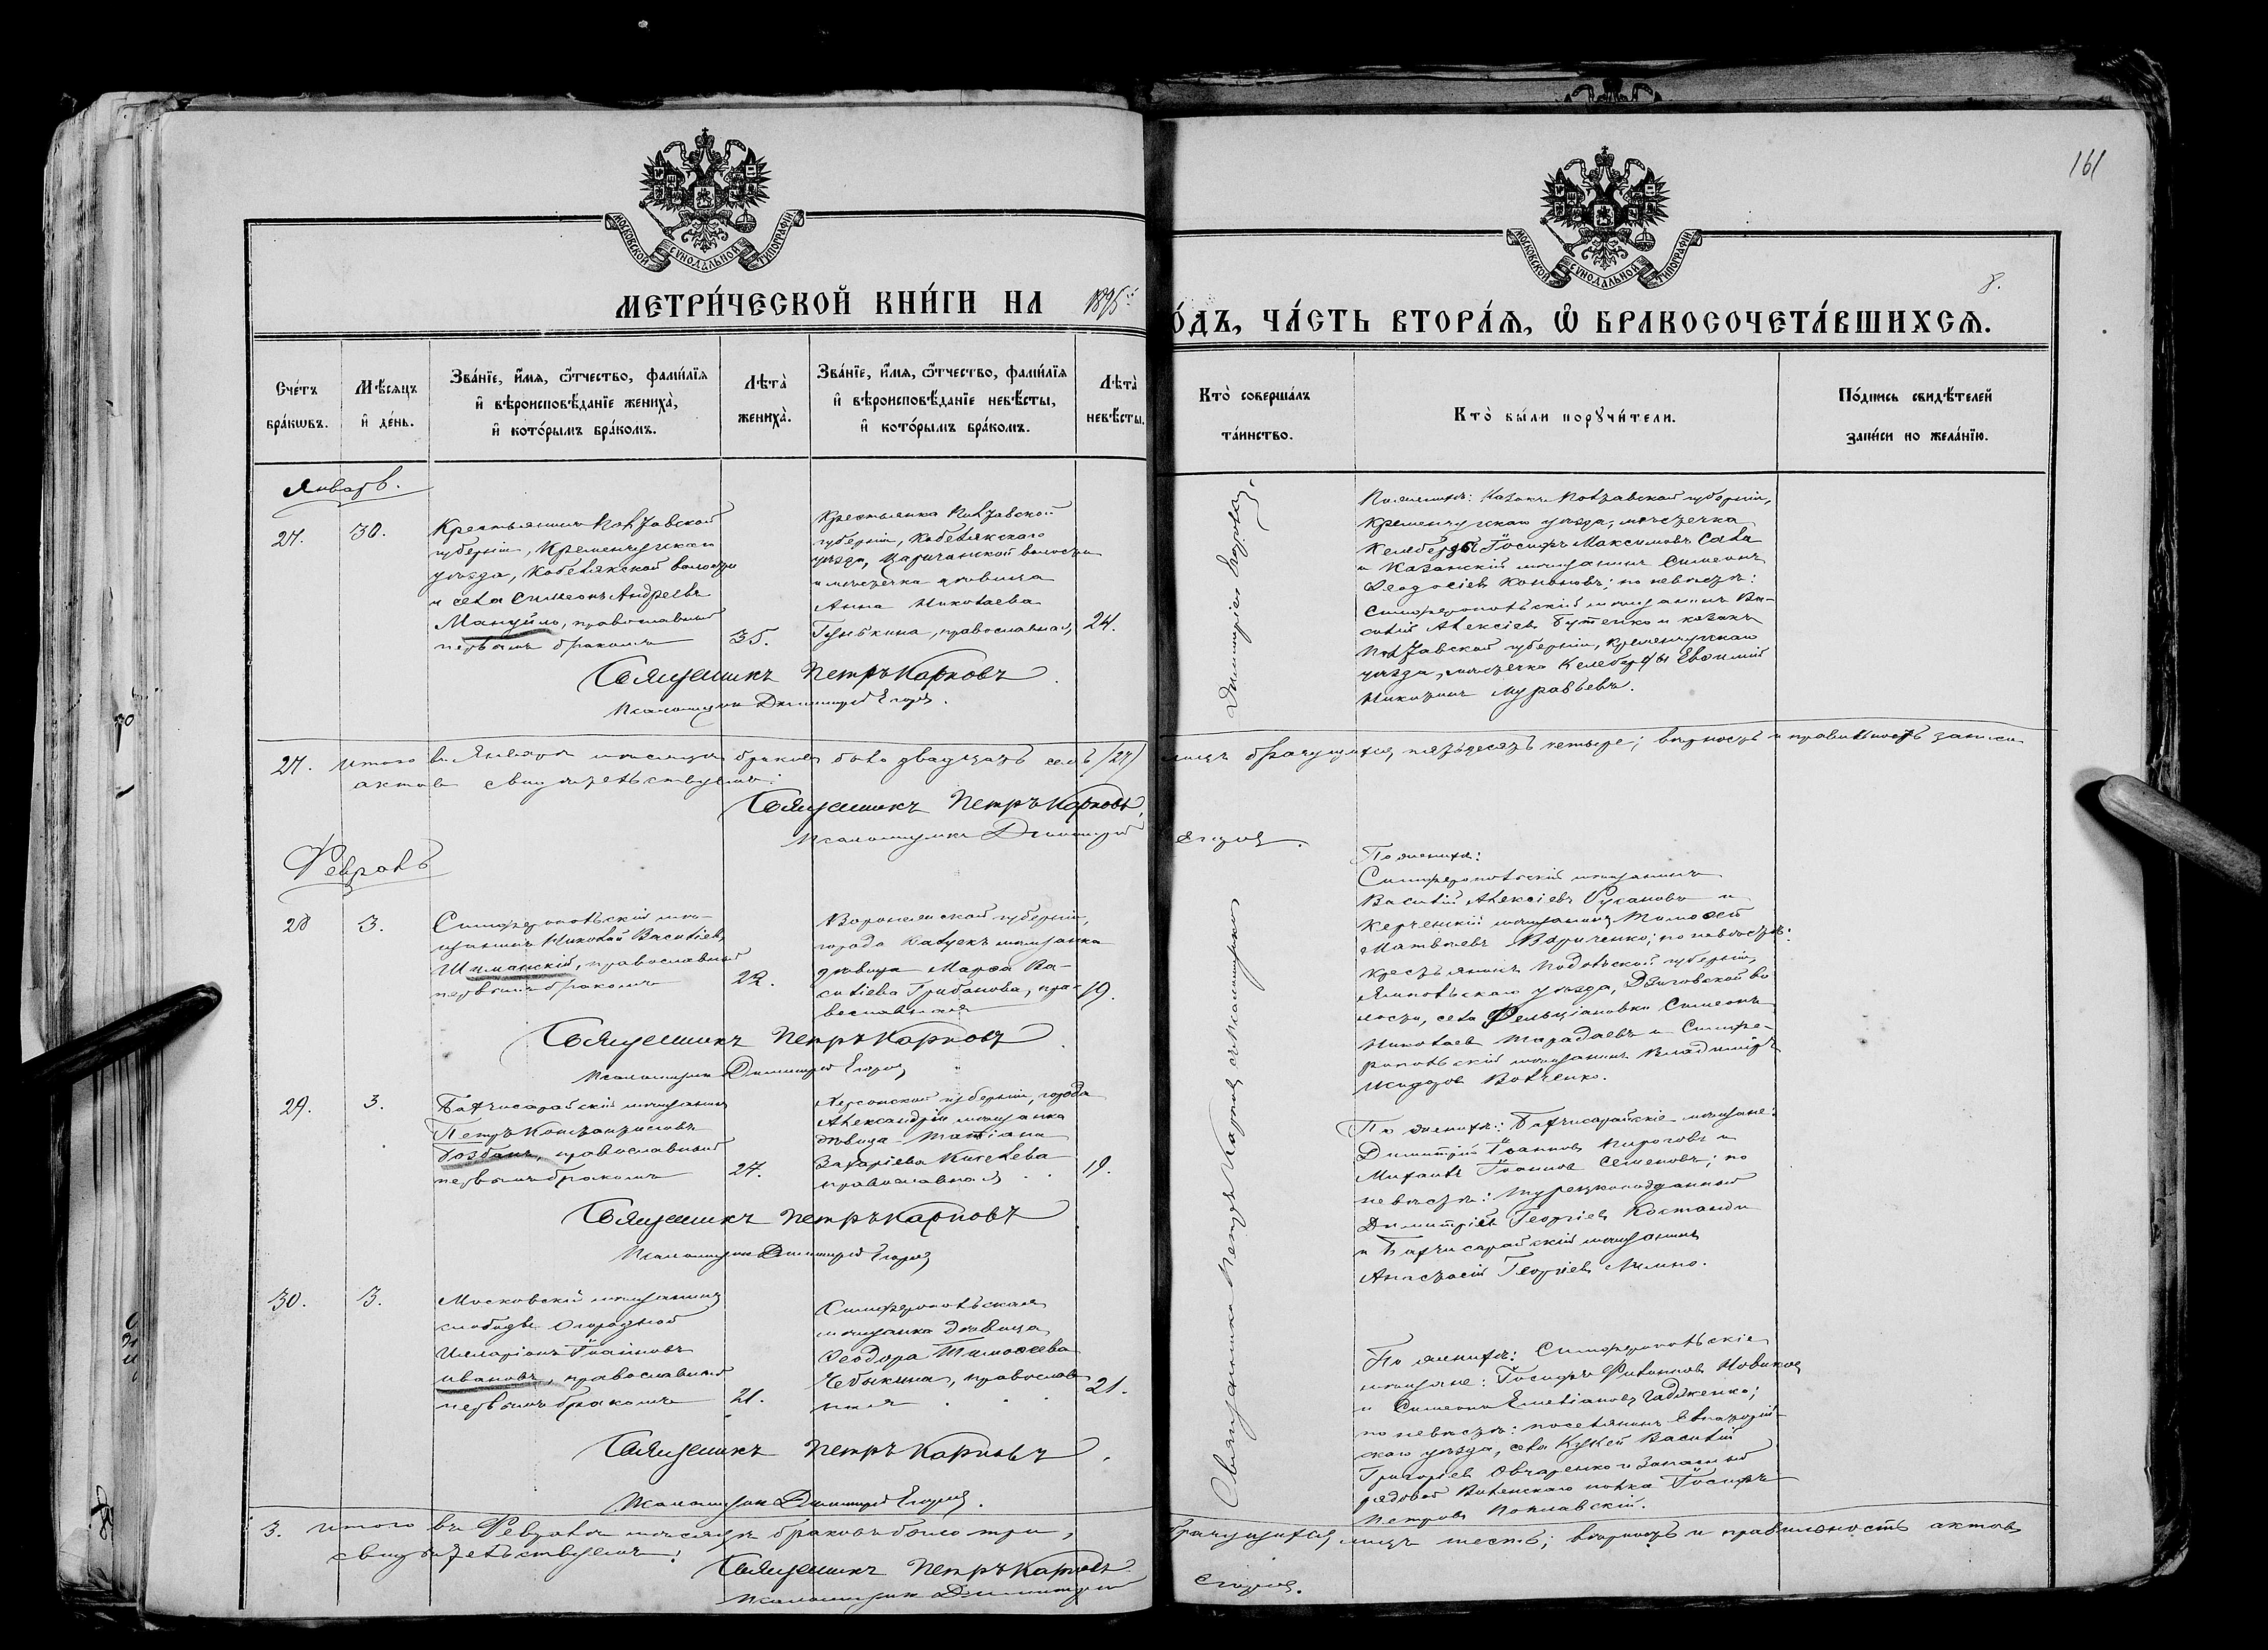 161
МОСКОВСКОЙ СѴНОДАЛЬНОЙ ТИПОГРАФІИ
МОСКОВСКОЙ СѴНОДАЛЬНОЙ ТИПОГРАФІИ
8.
МЕТРИ́ЧЕСКОЙ КНИ́ГИ НА 1896
О́ДЪ, ЧА́СТЬ ВТОРА́Я, Ѿ БРАКОСОЧЕТА́ВШИХСЯ.
Сче́тъ бра́кѡвъ.
Мѣ́сяцъ и҆ де́нь.
Зва́нїе, и҆́мя, ѻ҆́тчество, фами́лїя и҆ вѣроисповѣ́данїе жениха̀, и҆ кото́рымъ бра́комъ.
Лѣта̀ жениха̀.
Зва́нїе, и҆́мя, ѻ҆́тчество, фами́лїя и҆ вѣроисповѣ́данїе невѣ́сты, и҆ кото́рымъ бра́комъ.
Лѣта̀ невѣ́сты.
Кто̀ соверша́лъ та́инство.
Кто̀ бы́ли порꙋчи́тели.
По́дпись свидѣ́телей за́писи по жела́нїю.
Январь.
27.
30.
Крестьянинъ Полтавской
губерніи, Кременчугскаго
уѣзда, Кобелякской волости
и села Симеонъ Андреевъ
Мануйло, православный
первымъ бракомъ
35.
Крестьянка Полтавской
губерніи, Кобелякскаго
уѣзда, Царичанской волости
и мѣстечка дѣвица
Анна Николаева
православная,
24.
По женихѣ: Казакъ Полтавской губерніи,
Кременчугскаго уѣзда, мѣстечка
Келеберды Іосифъ Максимовъ Сала
и Казанскій мѣщанинъ Симеонъ
Ѳеодосіевъ Кононовъ; по невѣстѣ:
Симферопольскій мѣщанинъ Ва-
силій Алексіевъ Бутенко и казакъ
Полтавской губерніи, Кременчугскаго
уѣзда, мѣстечка Келеберды Евѳимій
Муравьевъ.
Священникъ Петръ Карповъ
Псаломщикъ Димитрій Егоровъ.
27. Итого въ Январѣ мѣсяцѣ браковъ было двадцать семь (27)
лицъ брачущихся пятьдесятъ четыре; вѣрность и правильность записи
актовъ свидѣтельствуемъ:
Священникъ Петръ Карповъ,
Псаломщикъ Димитрій
Егоровъ.
Февраль
28
3.
Симферопольскій мѣ-
щанинъ Николай Василіевъ
Шиманскій, православный
первымъ бракомъ
22.
Воронежской губерніи,
города мѣщанка
дѣвица Марѳа Ва-
силіева Грибанова, пра-
вославная
19.
По женихѣ:
Симферопольскій мѣщанинъ
Василій Алексіевъ и
Керченскій мѣщанинъ Тимоѳей
Матвѣевъ; по невѣстѣ:
крестьянинъ Подольской губерніи,
Ямпольскаго уѣзда, Дзиговской во
лости, села Фельціановки Симеонъ
Николаевъ Тарадаевъ и Симфе-
ропольскій мѣщанинъ Владиміръ
Волченко.
Священникъ Петръ Карповъ
Псаломщикъ Димитрій Егоровъ
29.
3.
Бахчисарайскій мѣщанинъ
Петръ Константиновъ
Бозбанъ, православный
первымъ бракомъ
27.
Херсонской губерніи, города
Александріи мѣщанка
дѣвица Татіана
Захаріева Киселева
православная
19.
По женихѣ: Бахчисарайскіе мѣщане:
Димитрій Іоанновъ Пироговъ и
Михаилъ Іоанновъ Семеновъ; по
невѣстѣ: Турецкоподданный
Димитрій Георгіевъ Костанди
и Бахчисарайскій мѣщанинъ
Анастасій Георгіевъ
Священникъ Петръ Карповъ
Псаломщикъ Димитрій Егоровъ
30.
3.
Московскій мѣщанинъ
слободы Огородной
Илларіонъ Іоанновъ
Ивановъ, православный
первымъ бракомъ
21.
Симферопольская
мѣщанка дѣвица
Ѳеодора Тимоѳеева
Чебыкина, православ
ная
21.
По женихѣ: Симферопольскіе
мѣщане: Іосифъ Филипповъ Новиковъ
и Симеонъ Емеліановъ Гадженко;
по невѣстѣ: поселянинъ Евпаторій-
скаго уѣзда, села Василій
Григоріевъ Овчаренко и Запасный
рядовой Виленскаго полка Іосифъ
Петровъ Поплавскій.
Священникъ Петръ Карповъ
Псаломщикъ Димитрій Егоровъ.
Священникъ Петръ Карповъ съ псаломщикомъ
Димитріемъ Егоровымъ.
3. Итого въ Февралѣ мѣсяцѣ браковъ было три,
брачущихся лицъ шесть; вѣрность и правильность актовъ
свидѣтельствуемъ:
Священникъ Петръ Карповъ
Псаломщикъ Димитрій
Егоровъ.